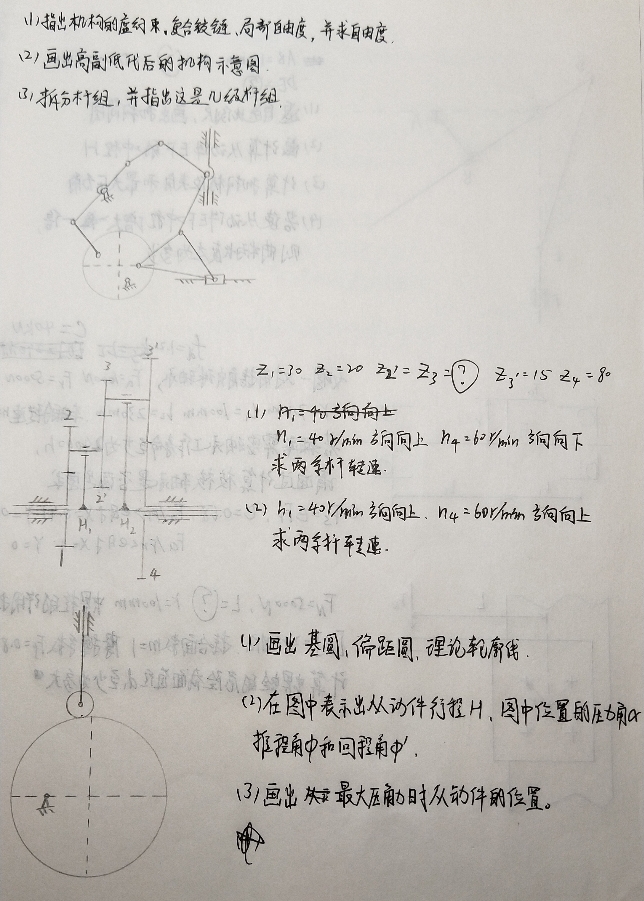 (1) 指出机构的虚约束,复合铰链、局部自由度,并求自由度.
(2) 画出高副低代后的机构示意图.
(3) 拆分杆组,并指出这是几级杆组.
3'
3
2
2'
H₁
H₂
1
4
Z₁=30 Z₂=20 Z₂'=Z₃=? Z₃'=15 Z₄=80
(1) n₁=40 方向向上
n₁=40r/min 方向向上 n₄=60r/min 方向向下
求两系杆转速.
(2) n₁=40r/min 方向向上、n₄=60r/min 方向向上
求两系杆转速.
(1) 画出基圆,偏距圆,理论轮廓线.
(2) 在图中表示出从动件行程H、图中位置的压力角α
推程角Φ和回程角Φ'.
(3) 画出最大压角力时从动件的位置。